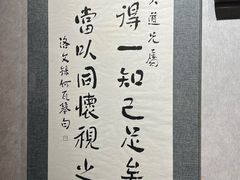 仌道兄屬
得一知己足矣
當以同懷視之
洛文錄何瓦琴句